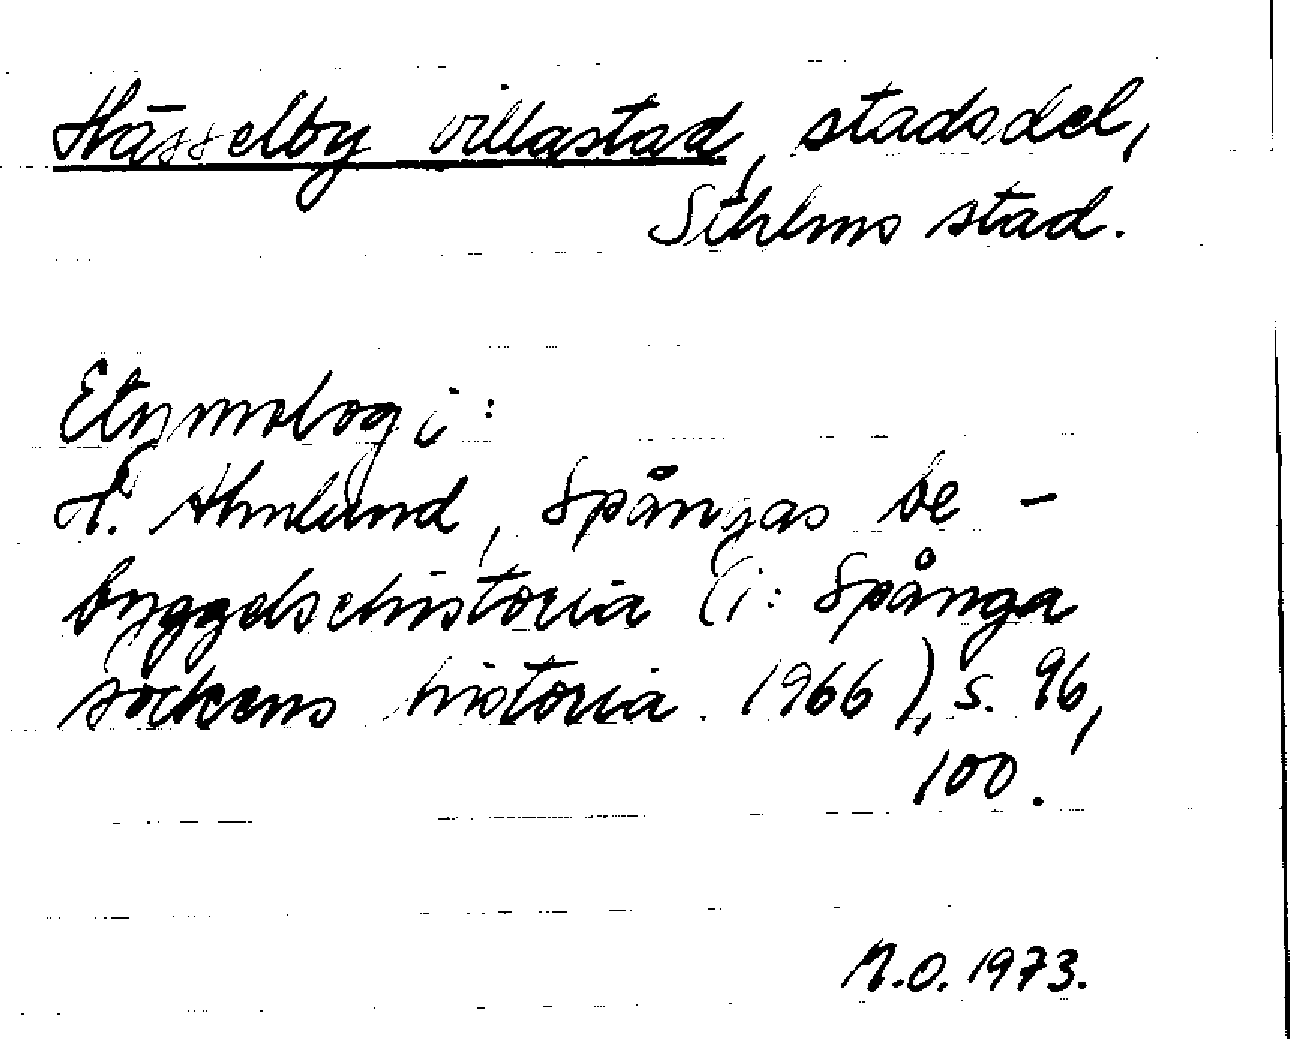 Hässelby villastad, stadsdel,
Sthlms stad.
Etymologi:
H. Ahnlund, Spångas be-
byggelsehistoria (i: Spånga
sockens historia 1966), s. 96,
100.
N.O. 1973.